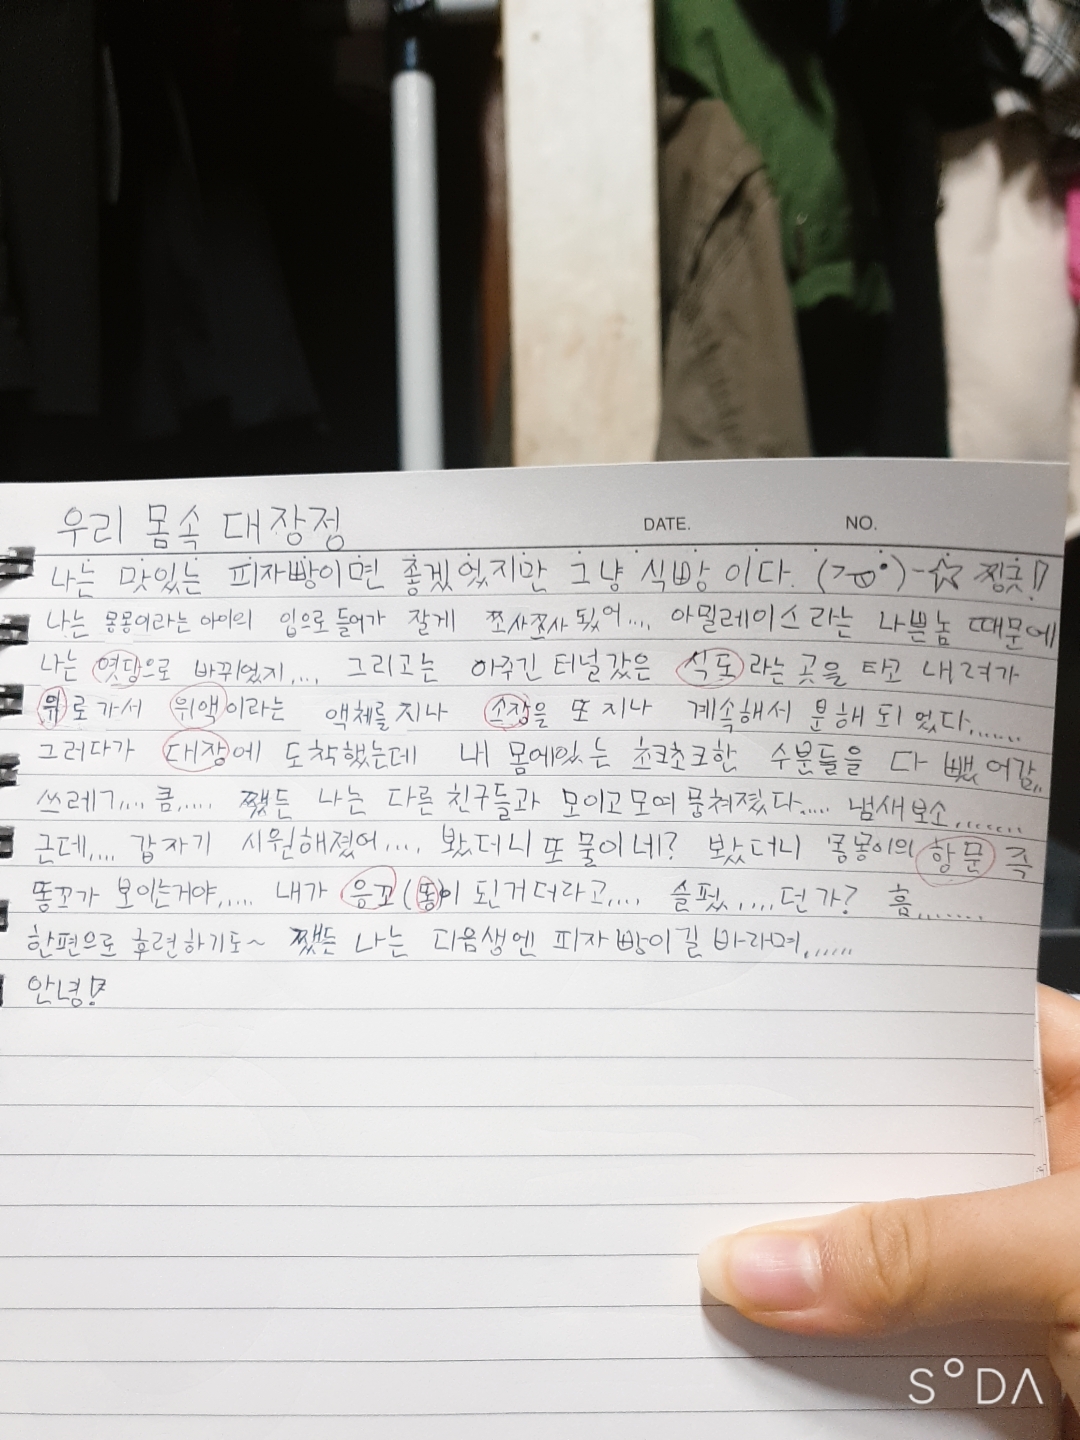 우리 몸속 대장정
DATE.
NO.
나는 맛있는 피자빵이면 좋겠었지만 그냥 식빵 이다. ☆ 찡긋!
나는 몽몽이라는 아이의 입으로 들어가 잘게 쪼사쪼사 됬어.... 아밀레이스라는 나쁜놈 때문에
나는 엿당으로 바뀌었지.... 그리고는 아주긴 터널같은 식도 라는 곳을 타고 내려가
위로 가서 위액이라는 액체를 지나 소장을 또 지나 계속해서 분해 되었다......
그러다가 대장에 도착했는데 내 몸에있는 촉크초크한 수분들을 다 뺐어감..
쓰레기.... 큼..... 쨌든 나는 다른 친구들과 모이고모여 뭉쳐졌다.... 냄새보소.......
근데.... 갑자기 시원해졌어.... 봤더니 또 물이네? 봤더니 몽몽이의 항문 즉
똥꼬가 보이는거야..... 내가 응꼬(똥)이 된거더라고.... 슬펐.....던가? 흠.......
한편으로 후련하기도~ 쨌든 나는 다음생엔 피자빵이길 바라며......
안녕!
SODA